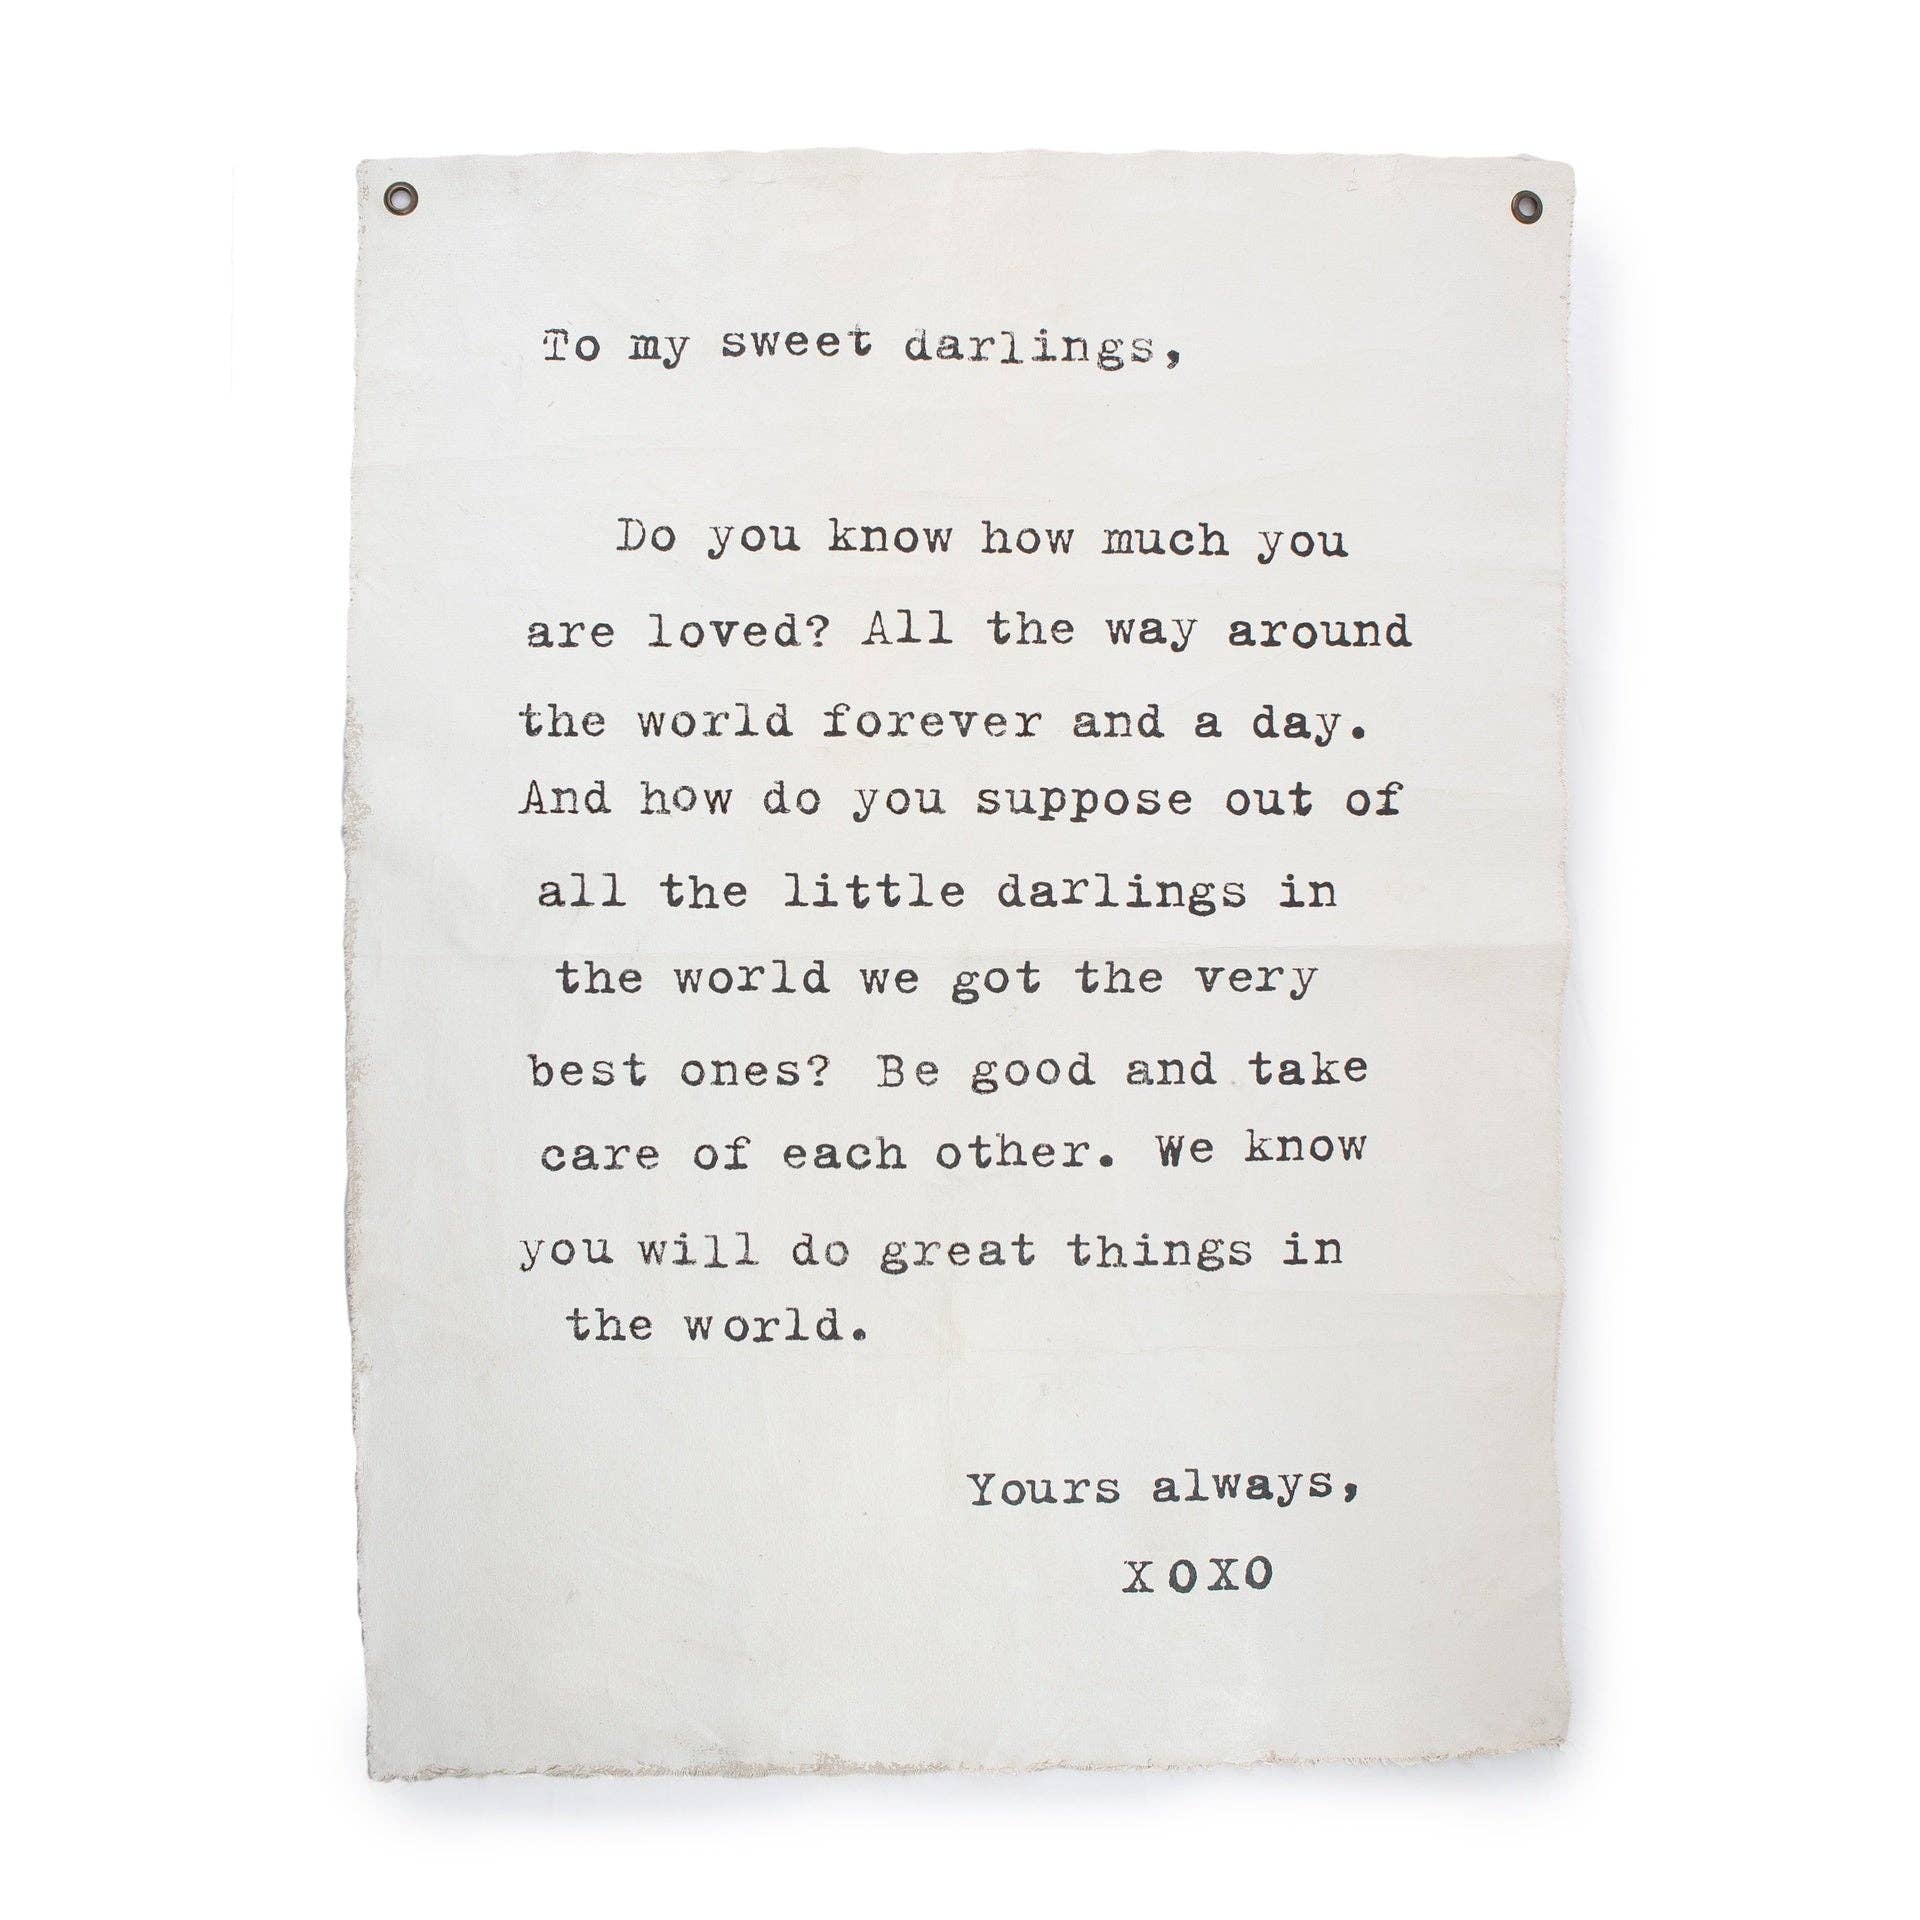 To my sweet darlings,
Do you know how much you
are loved? All the way around
the world forever and a day.
And how do you suppose out of
all the little darlings in
the world we got the very
best ones? Be good and take
care of each other. We know
you will do great things in
the world.
Yours always,
XOXO